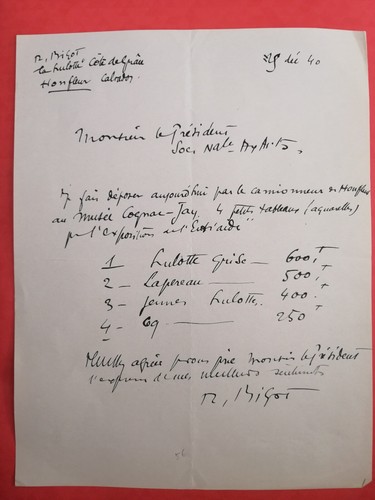 R. Bigot
la hulotte Côte de Grâce
Honfleur Calvados
25 déc 40
Monsieur le Président
Soc. Nale Bx Arts,
Je fais déposer aujourd'hui par le camionneur de Honfleur
au Musée Cognac-Jay, 4 petits tableaux (aquarelles)
pr l'exposition "l'Entr'aide"
1 hulotte Grise — 600 F
2 — Lapereau — 500 F
3 — jeunes hulottes. 400 F
4 — Coq — 250 F
Veuillez agréer je vous prie monsieur le Président
l'expression de mes meilleurs sentiments
R. Bigot